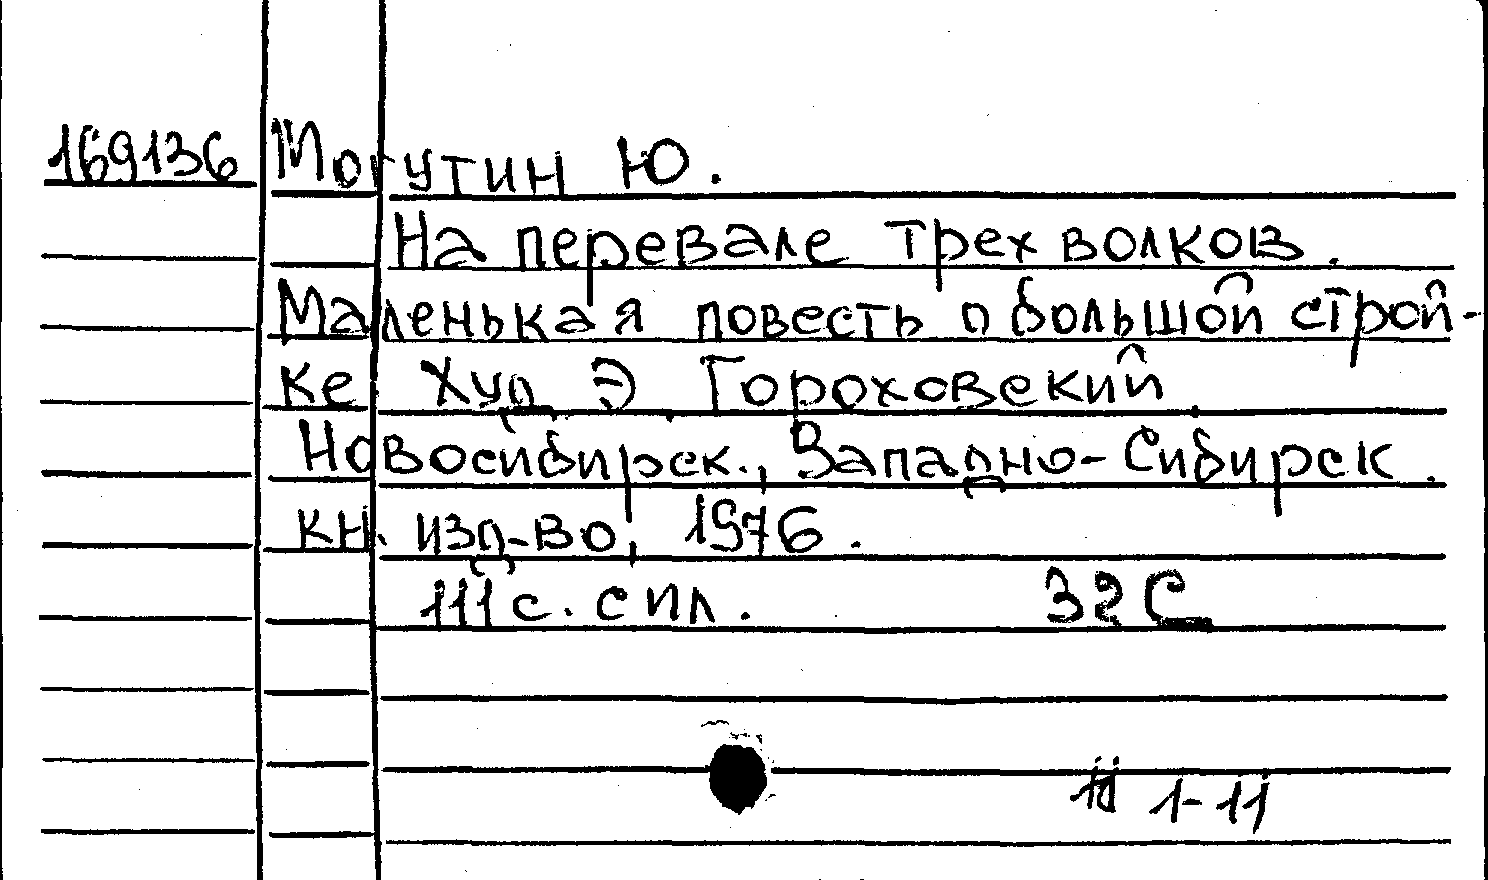 169136 Могутин Ю.
На перевале трех волков.
Маленькая повесть о большой строй-
ке. Худ. Э. Гороховский.
Новосибирск., Западно-Сибирск.
кн. изд-во, 1976.
111 с. с ил. 32 С
1-11